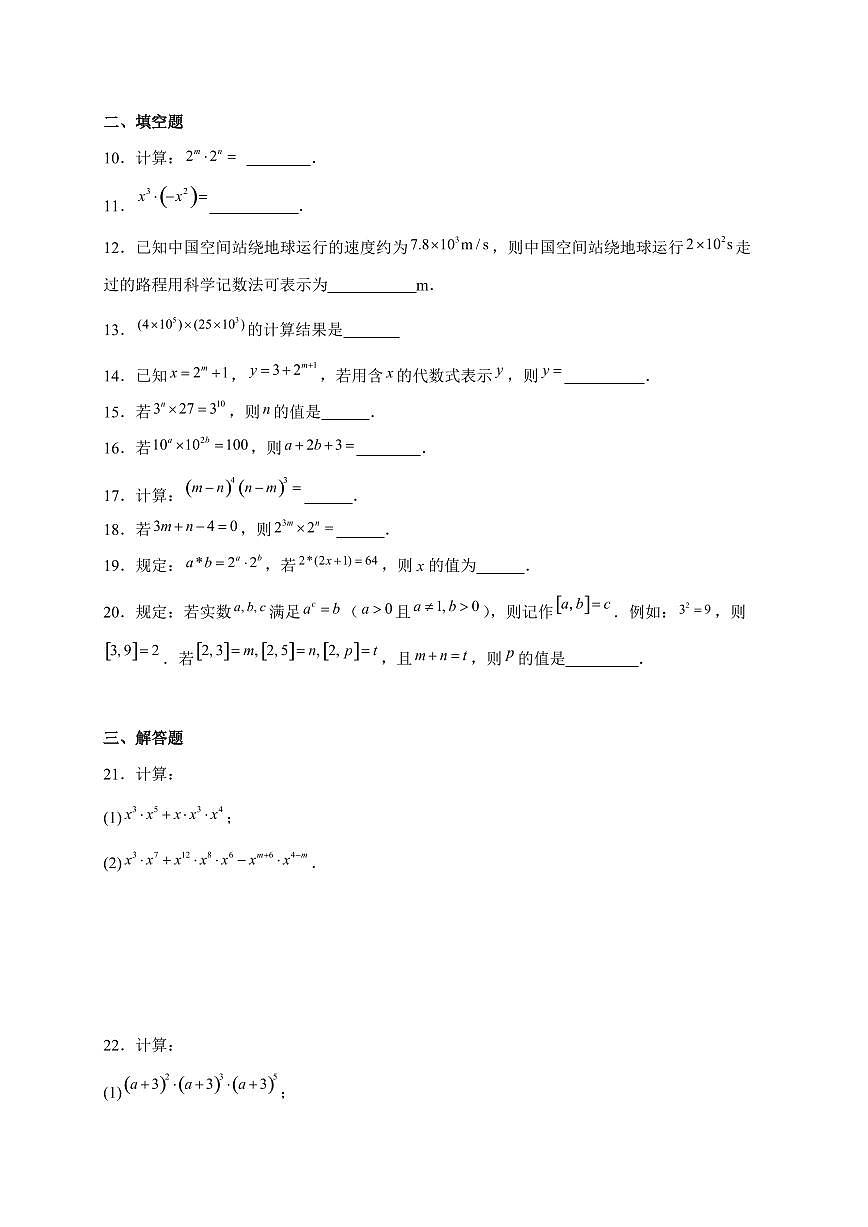 二、填空题
10．计算：$2^m \cdot 2^n =$ ________．
11．$x^3 \cdot (-x^2) =$___________．
12．已知中国空间站绕地球运行的速度约为$7.8 \times 10^3 \mathrm{m/s}$，则中国空间站绕地球运行$2 \times 10^2 \mathrm{s}$走
过的路程用科学记数法可表示为___________m．
13．$(4 \times 10^5) \times (25 \times 10^3)$的计算结果是_______
14．已知$x = 2^m + 1$，$y = 3 + 2^{m+1}$，若用含$x$的代数式表示$y$，则$y =$__________．
15．若$3^n \times 27 = 3^{10}$，则$n$的值是______．
16．若$10^a \times 10^{2b} = 100$，则$a + 2b + 3 =$________．
17．计算：$(m-n)^4 (n-m)^3 =$______．
18．若$3m + n - 4 = 0$，则$2^{3m} \times 2^n =$______．
19．规定：$a * b = 2^a \cdot 2^b$，若$2 * (2x+1) = 64$，则$x$的值为______．
20．规定：若实数$a, b, c$满足$a^c = b$（$a > 0$且$a \neq 1, b > 0$），则记作$[a, b] = c$．例如：$3^2 = 9$，则
$[3, 9] = 2$．若$[2, 3] = m, [2, 5] = n, [2, p] = t$，且$m + n = t$，则$p$的值是_________．
三、解答题
21．计算：
(1)$x^3 \cdot x^5 + x \cdot x^3 \cdot x^4$；
(2)$x^3 \cdot x^7 + x^{12} \cdot x^8 \cdot x^6 - x^{m+6} \cdot x^{4-m}$．
22．计算：
(1)$(a+3)^2 \cdot (a+3)^3 \cdot (a+3)^5$；